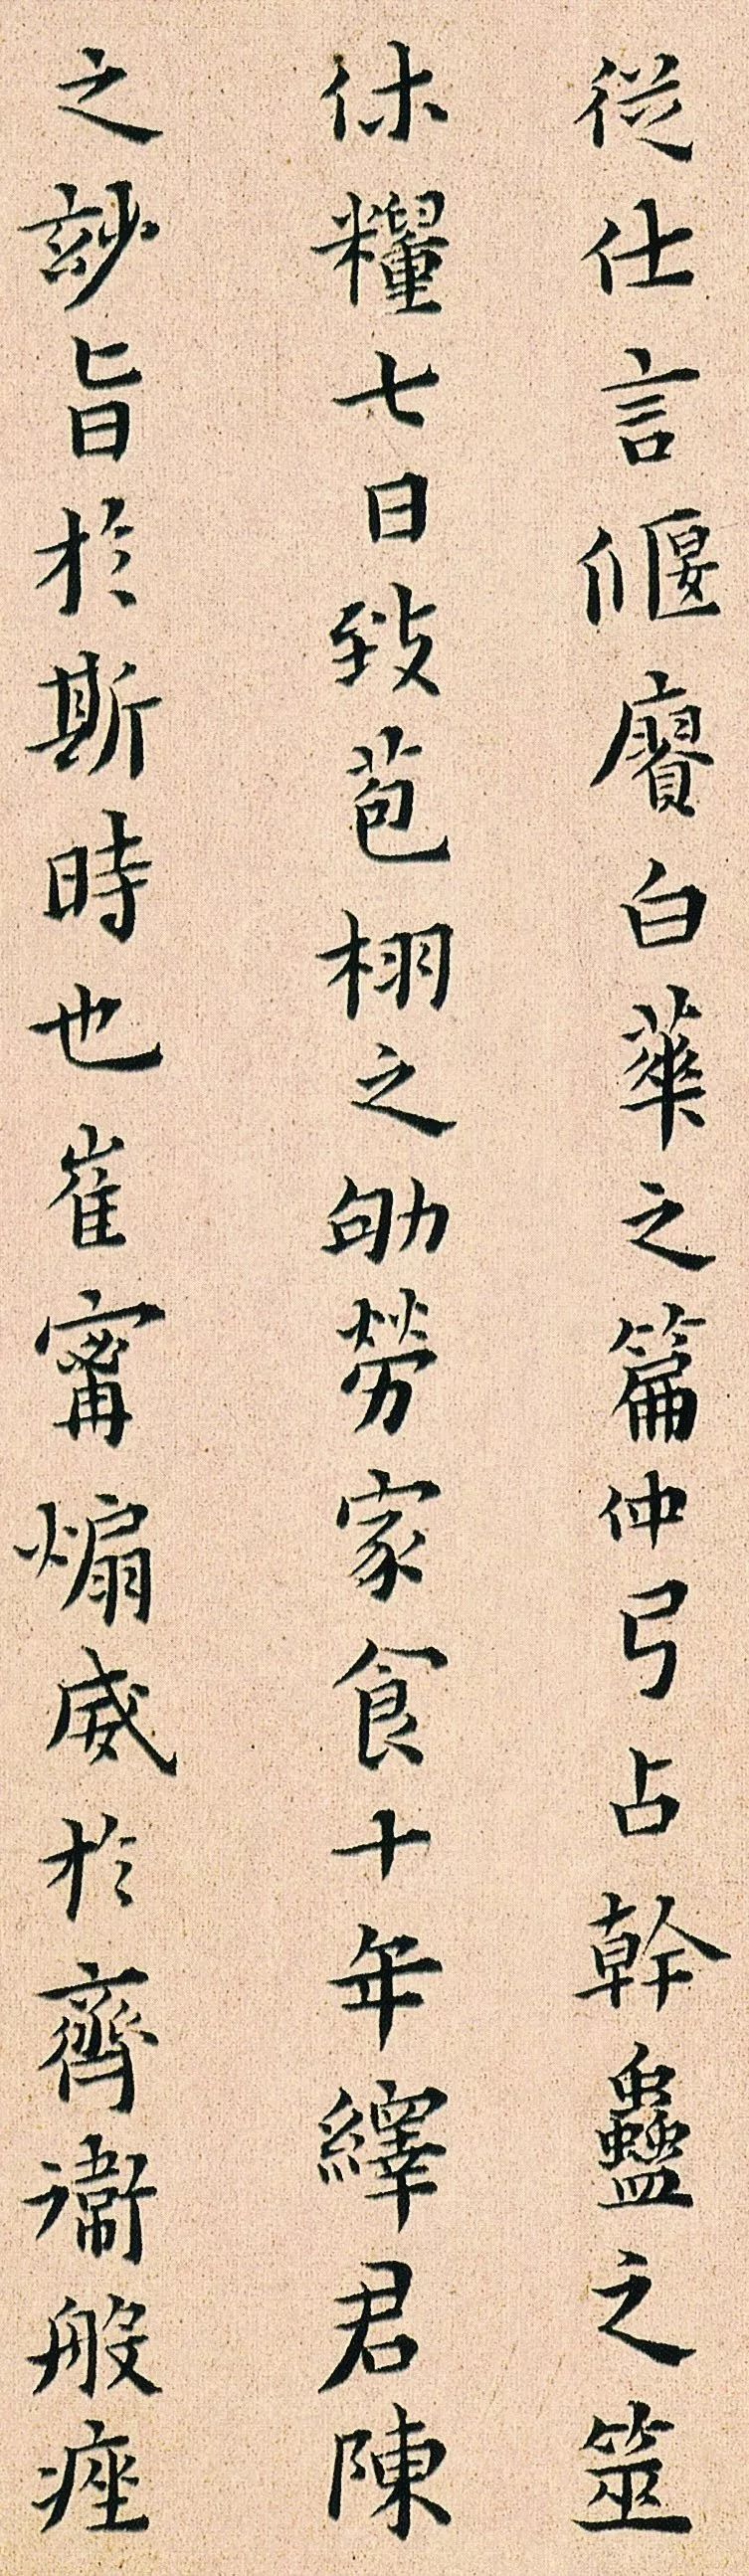 從仕言偃賡白華之篇仲弓占幹蠱之筮
休糧七日致苞栩之劬勞家食十年繹君陳
之竗旨於斯時也崔甯煽威於齊衛般痤